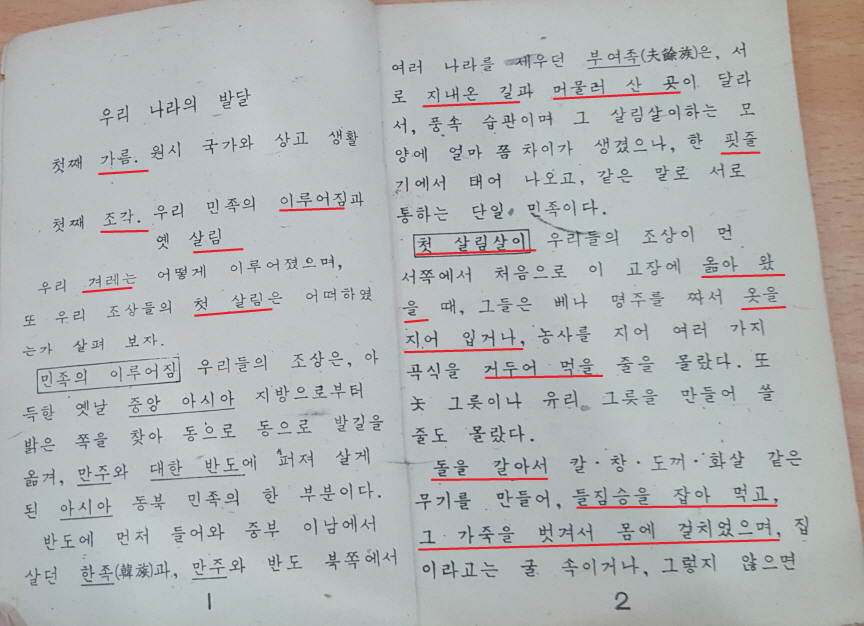 우리 나라의 발달
첫째 가름. 원시 국가와 상고 생활
첫째 조각. 우리 민족의 이루어짐과
옛 살림
우리 겨레는 어떻게 이루어졌으며,
또 우리 조상들의 첫 살림은 어떠하였
는가 살펴 보자.
민족의 이루어짐 우리들의 조상은, 아
득한 옛날 중앙 아시아 지방으로부터
밝은 쪽을 찾아 동으로 동으로 발길을
옮겨, 만주와 대한 반도에 퍼져 살게
된 아시아 동북 민족의 한 부분이다.
반도에 먼저 들어와 중부 이남에서
살던 한족(韓族)과, 만주와 반도 북쪽에서
1
여러 나라를 세우던 부여족(夫餘族)은, 서
로 지내온 길과 머물러 산 곳이 달라
서, 풍속 습관이며 그 살림살이하는 모
양에 얼마 쯤 차이가 생겼으나, 한 핏줄
기에서 태어 나오고, 같은 말로 서로
통하는 단일 민족이다.
첫 살림살이 우리들의 조상이 먼
서쪽에서 처음으로 이 고장에 옮아 왔
을 때, 그들은 베나 명주를 짜서 옷을
지어 입거나, 농사를 지어 여러 가지
곡식을 거두어 먹을 줄을 몰랐다. 또
놋 그릇이나 유리 그릇을 만들어 쓸
줄도 몰랐다.
돌을 갈아서 칼·창·도끼·화살 같은
무기를 만들어, 들짐승을 잡아 먹고,
그 가죽을 벗겨서 몸에 걸치었으며, 집
이라고는 굴 속이거나, 그렇지 않으면
2